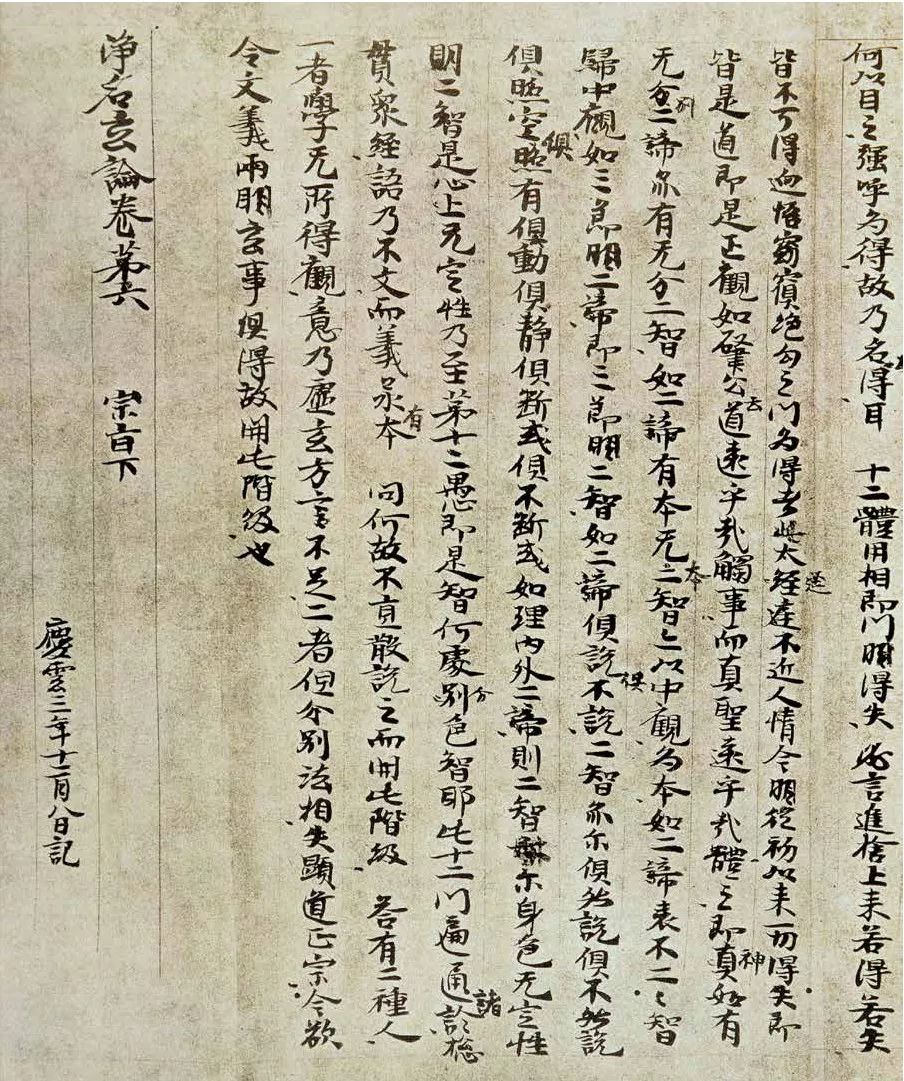 何以目之强呼为得故乃名得耳 十二體用相即門明得失 必言進捨上来若得若失
皆不可得迺悟窮賓絶句之門为得者與太経逕不近人情今明從初以来一切得失即
皆是道即是正觀如肇公道遠乎㢤觸事而真聖遠乎㢤體之即真神如有
无分二諦亦有无分二智如二諦有本无本二智亦以中觀为本如二諦表不二二智
歸中觀如三節明二諦即三節明二智如二諦俱説不説二智亦尓俱説俱不説
俱照空照有俱動俱静俱断或俱不断或如理内外二諦則二智亦尓身色无定性
明二智是心上无定性乃至第十二愚即是智何處分别色智耶此十二門遍通諸
貫衆経語乃不文而義有本 問何故不直散説之而開此階級 答有二種人
一者學无所得觀意乃虚玄方言不足二者但分别法相失顯道正宗今欲
令文義兩明玄事俱得故開此階級也
浄名玄論卷第六 宗旨下
慶雲三年十二月八日記